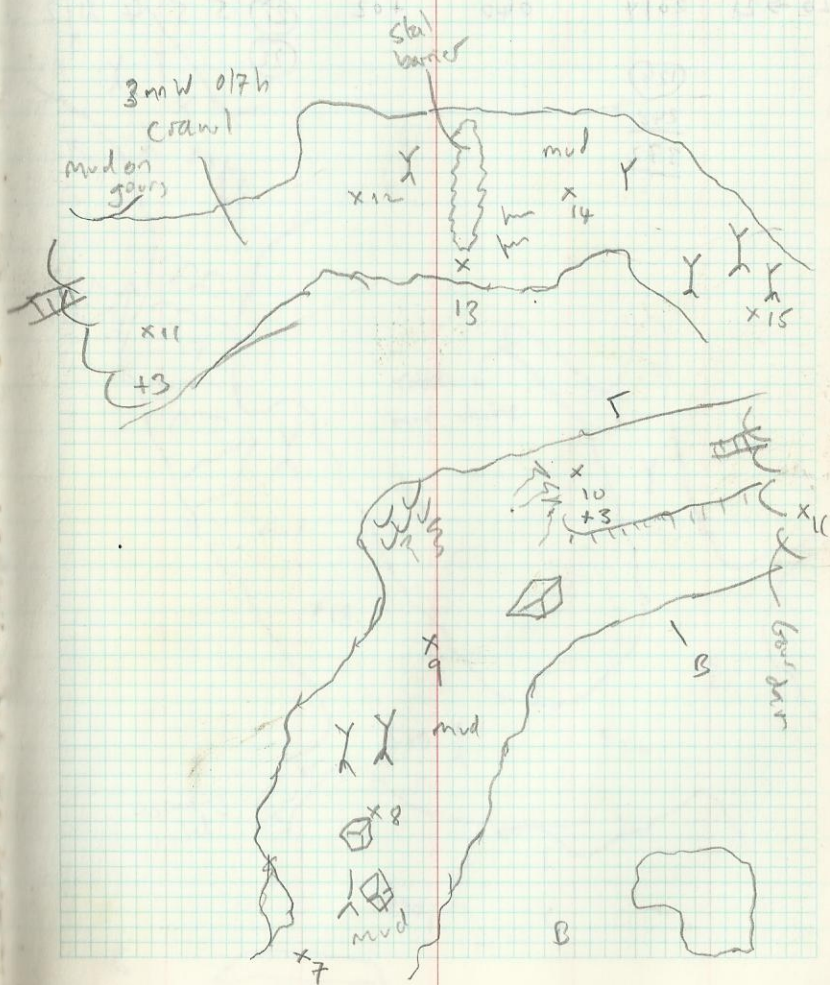 stal
barrier
crawl
mud on
gours
mud
x12
x
14
x
13
x15
x11
+3
x
10
+3
x11
B
Gour dam
x
9
mud
x8
mud
B
x7